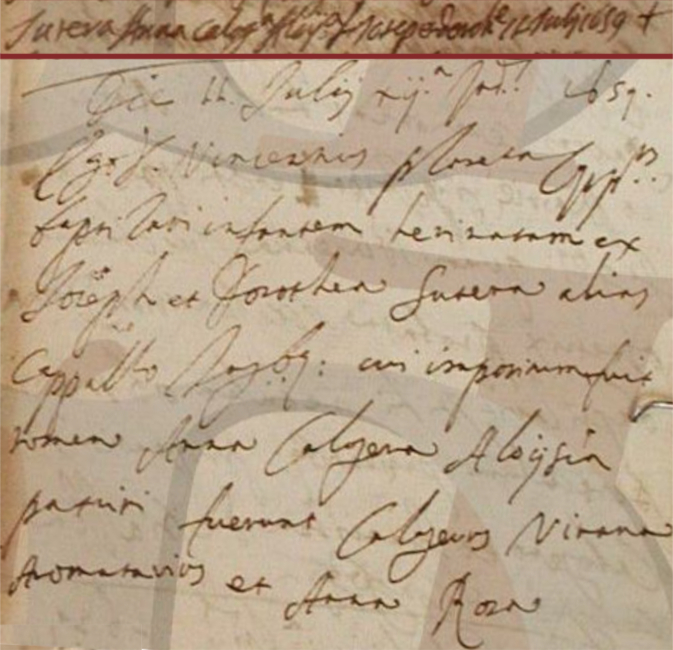 Sutera Anna Calog.ª Aloys.ª di Joseppe Doroth.ª 11 Julij 1659 +
Die 11 Julij xij.ª Ind. 1659.
Ego D. Vincenzius Arch.
baptizavi infantem heri natam ex
Joseph et Dorothea Sutera alias
Cappello Jugibq: cui impositum fuit
nomen Anna Calogera Aloijsia
patrini fuerunt Calogerus Virona
Aromatarius et Anna Rosa